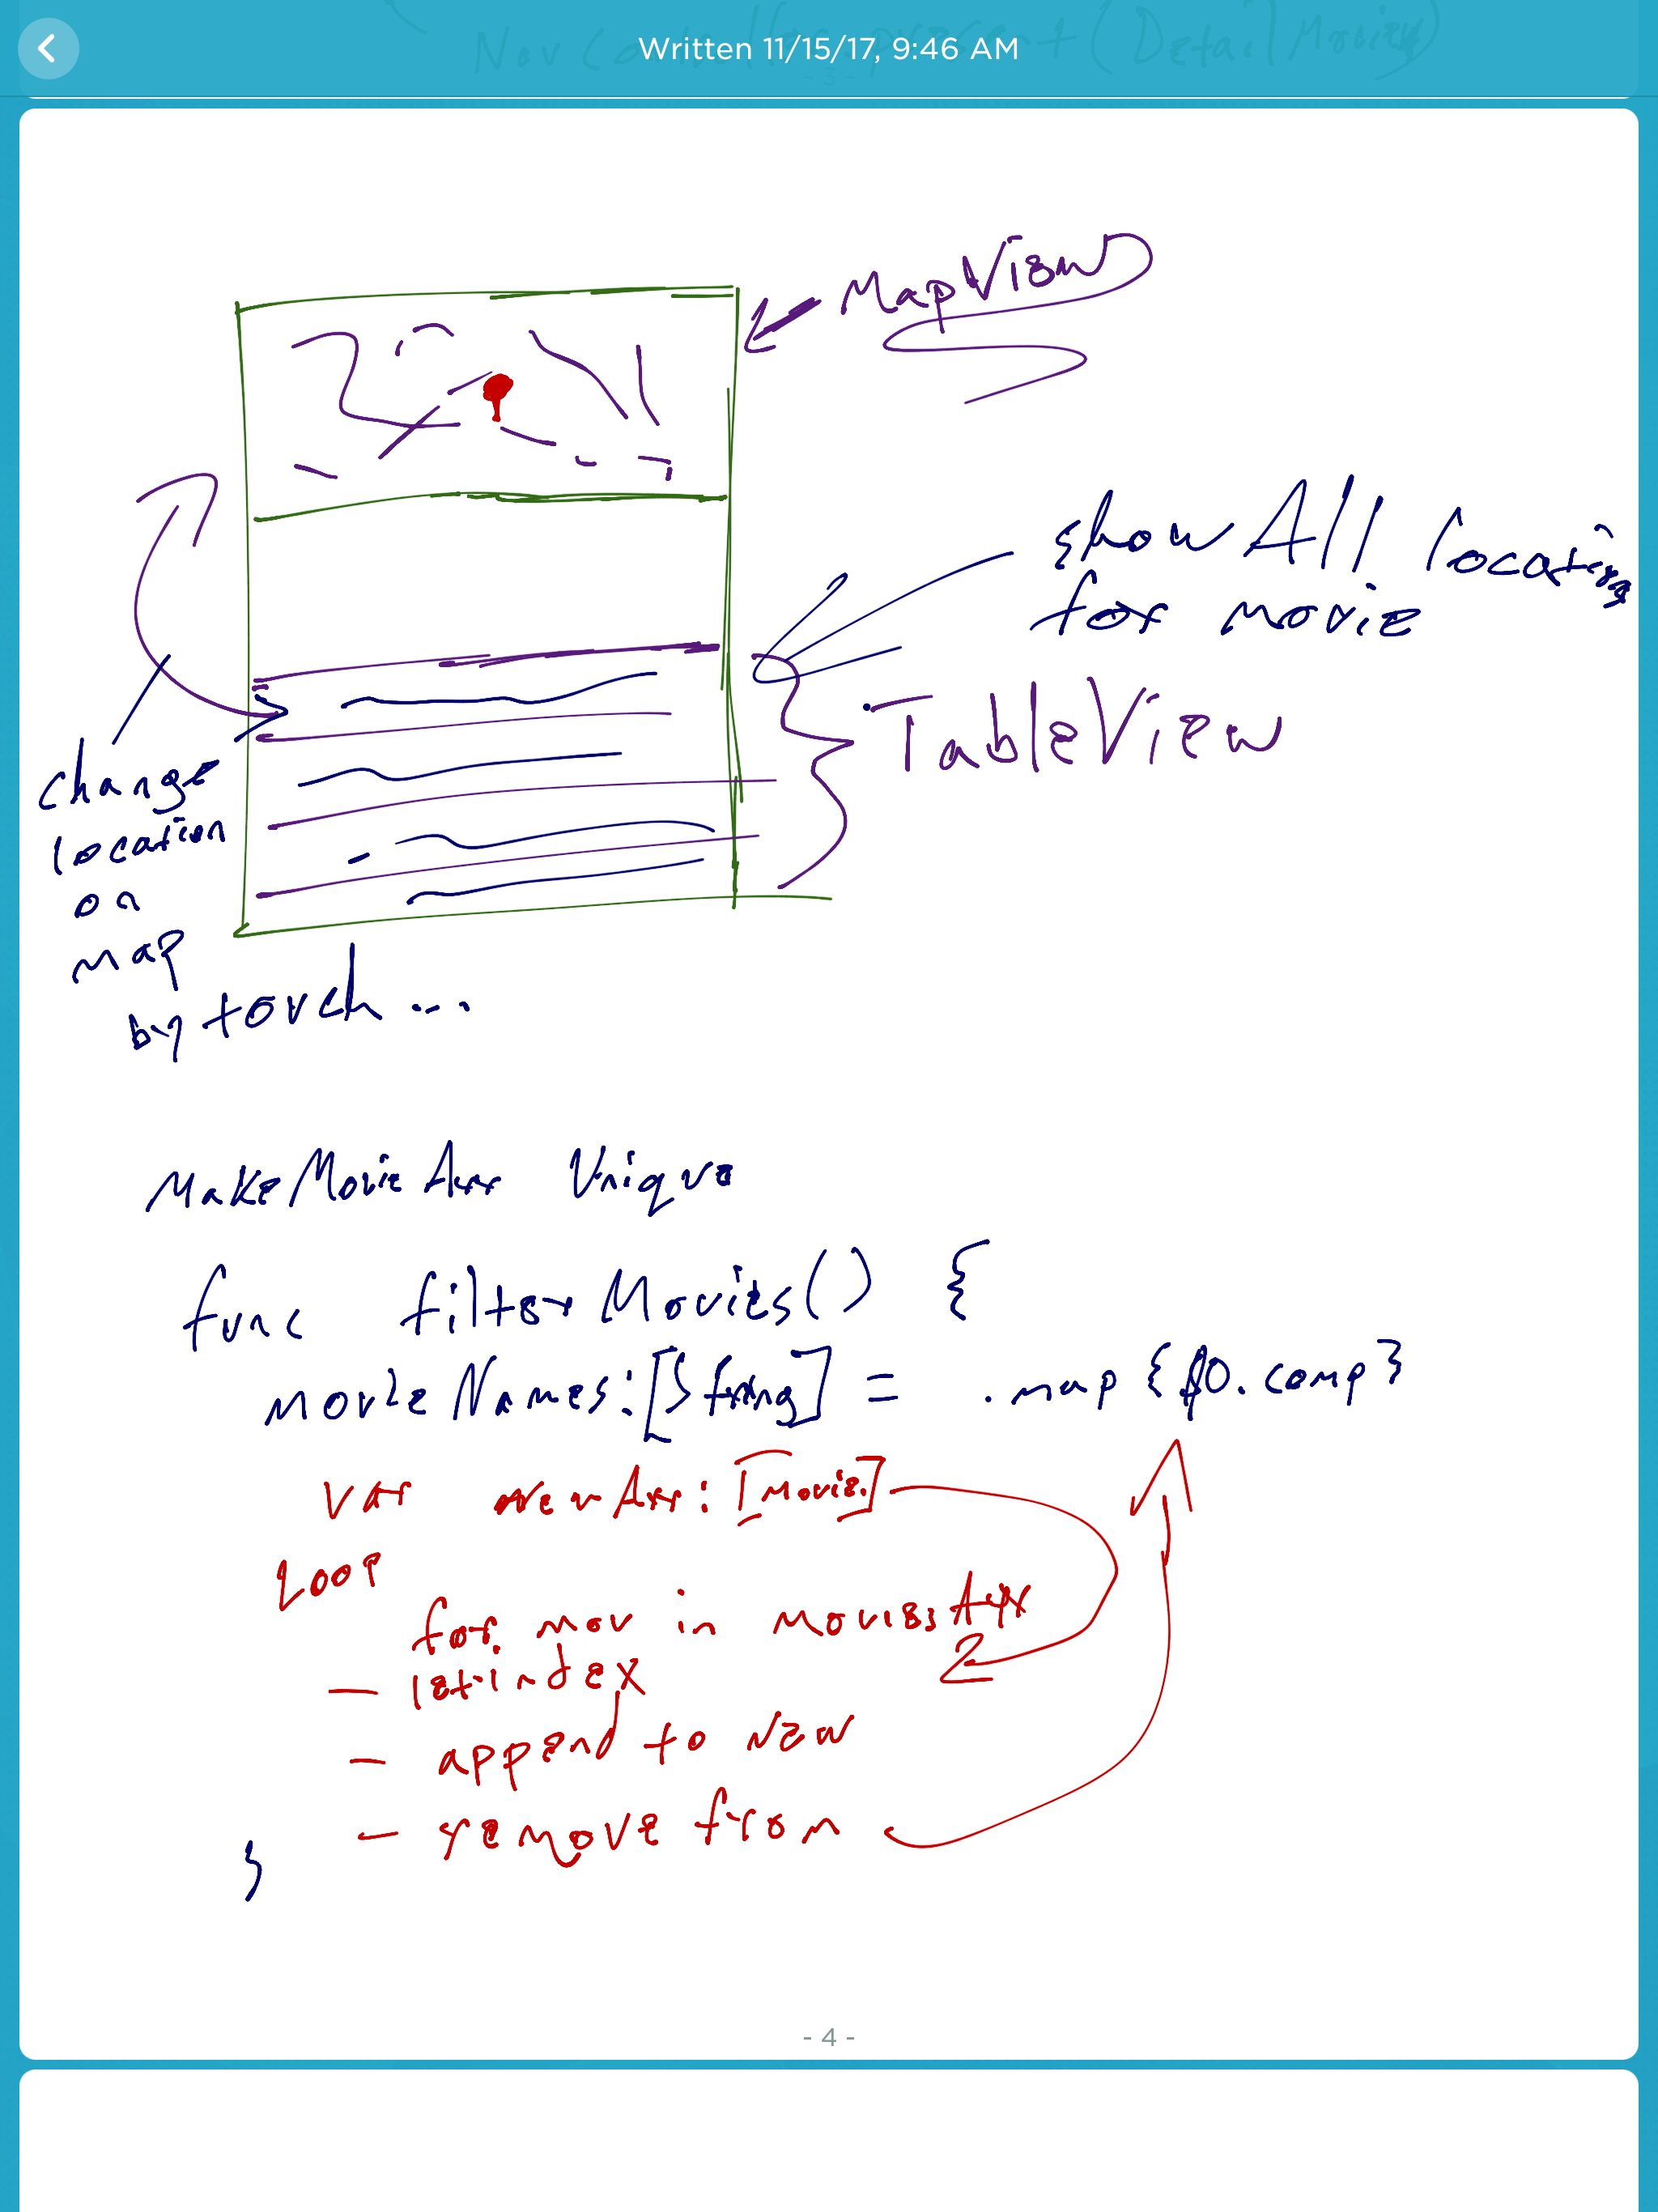 Written 11/15/17, 9:46 AM
Nav present (Detail Movie)
MapView
show All locations
for movie
TableView
change
location
on
map
by touch ...
MakeMovieArr Unique
func filterMovies() {
movieNames:[String] = .map {$0.comp}
var newArr: [Movie]
Loop
for mov in moviesArr
- let index
- append to new
- remove from
}
- 4 -